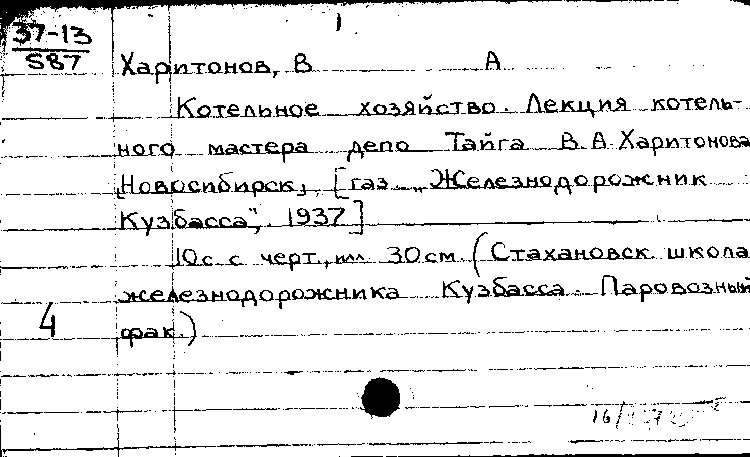 37-13
587
1
Харитонов, В А
Котельное хозяйство. Лекция котель-
ного мастера депо Тайга В.А. Харитонова
Новосибирск, [газ „Железнодорожник
Кузбасса", 1937]
10с с черт., илл 30см. (Стахановск. школа
железнодорожника Кузбасса. Паровозный
фак.)
4
16/